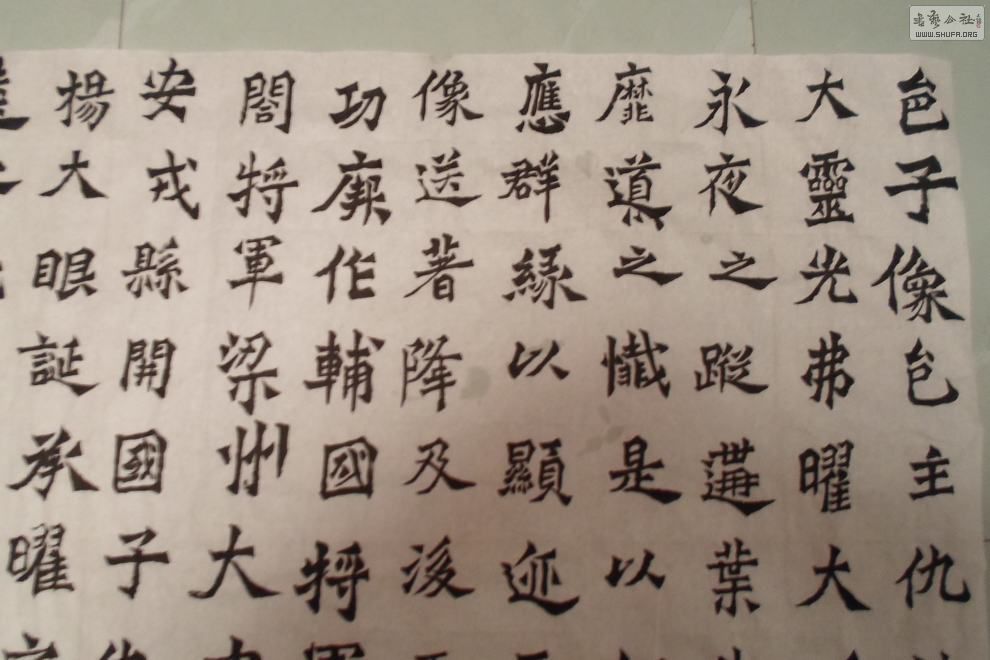 邑子像邑主仇
大靈光弗曜大
永夜之蹤遘葉
靡導之懺是以
應群緣以顯迹
像遂著降及後
功厥作輔國將
閣將軍梁州大
安戎縣開國子
楊大眼誕承曜
書藝公社
WWW.SHUFA.ORG